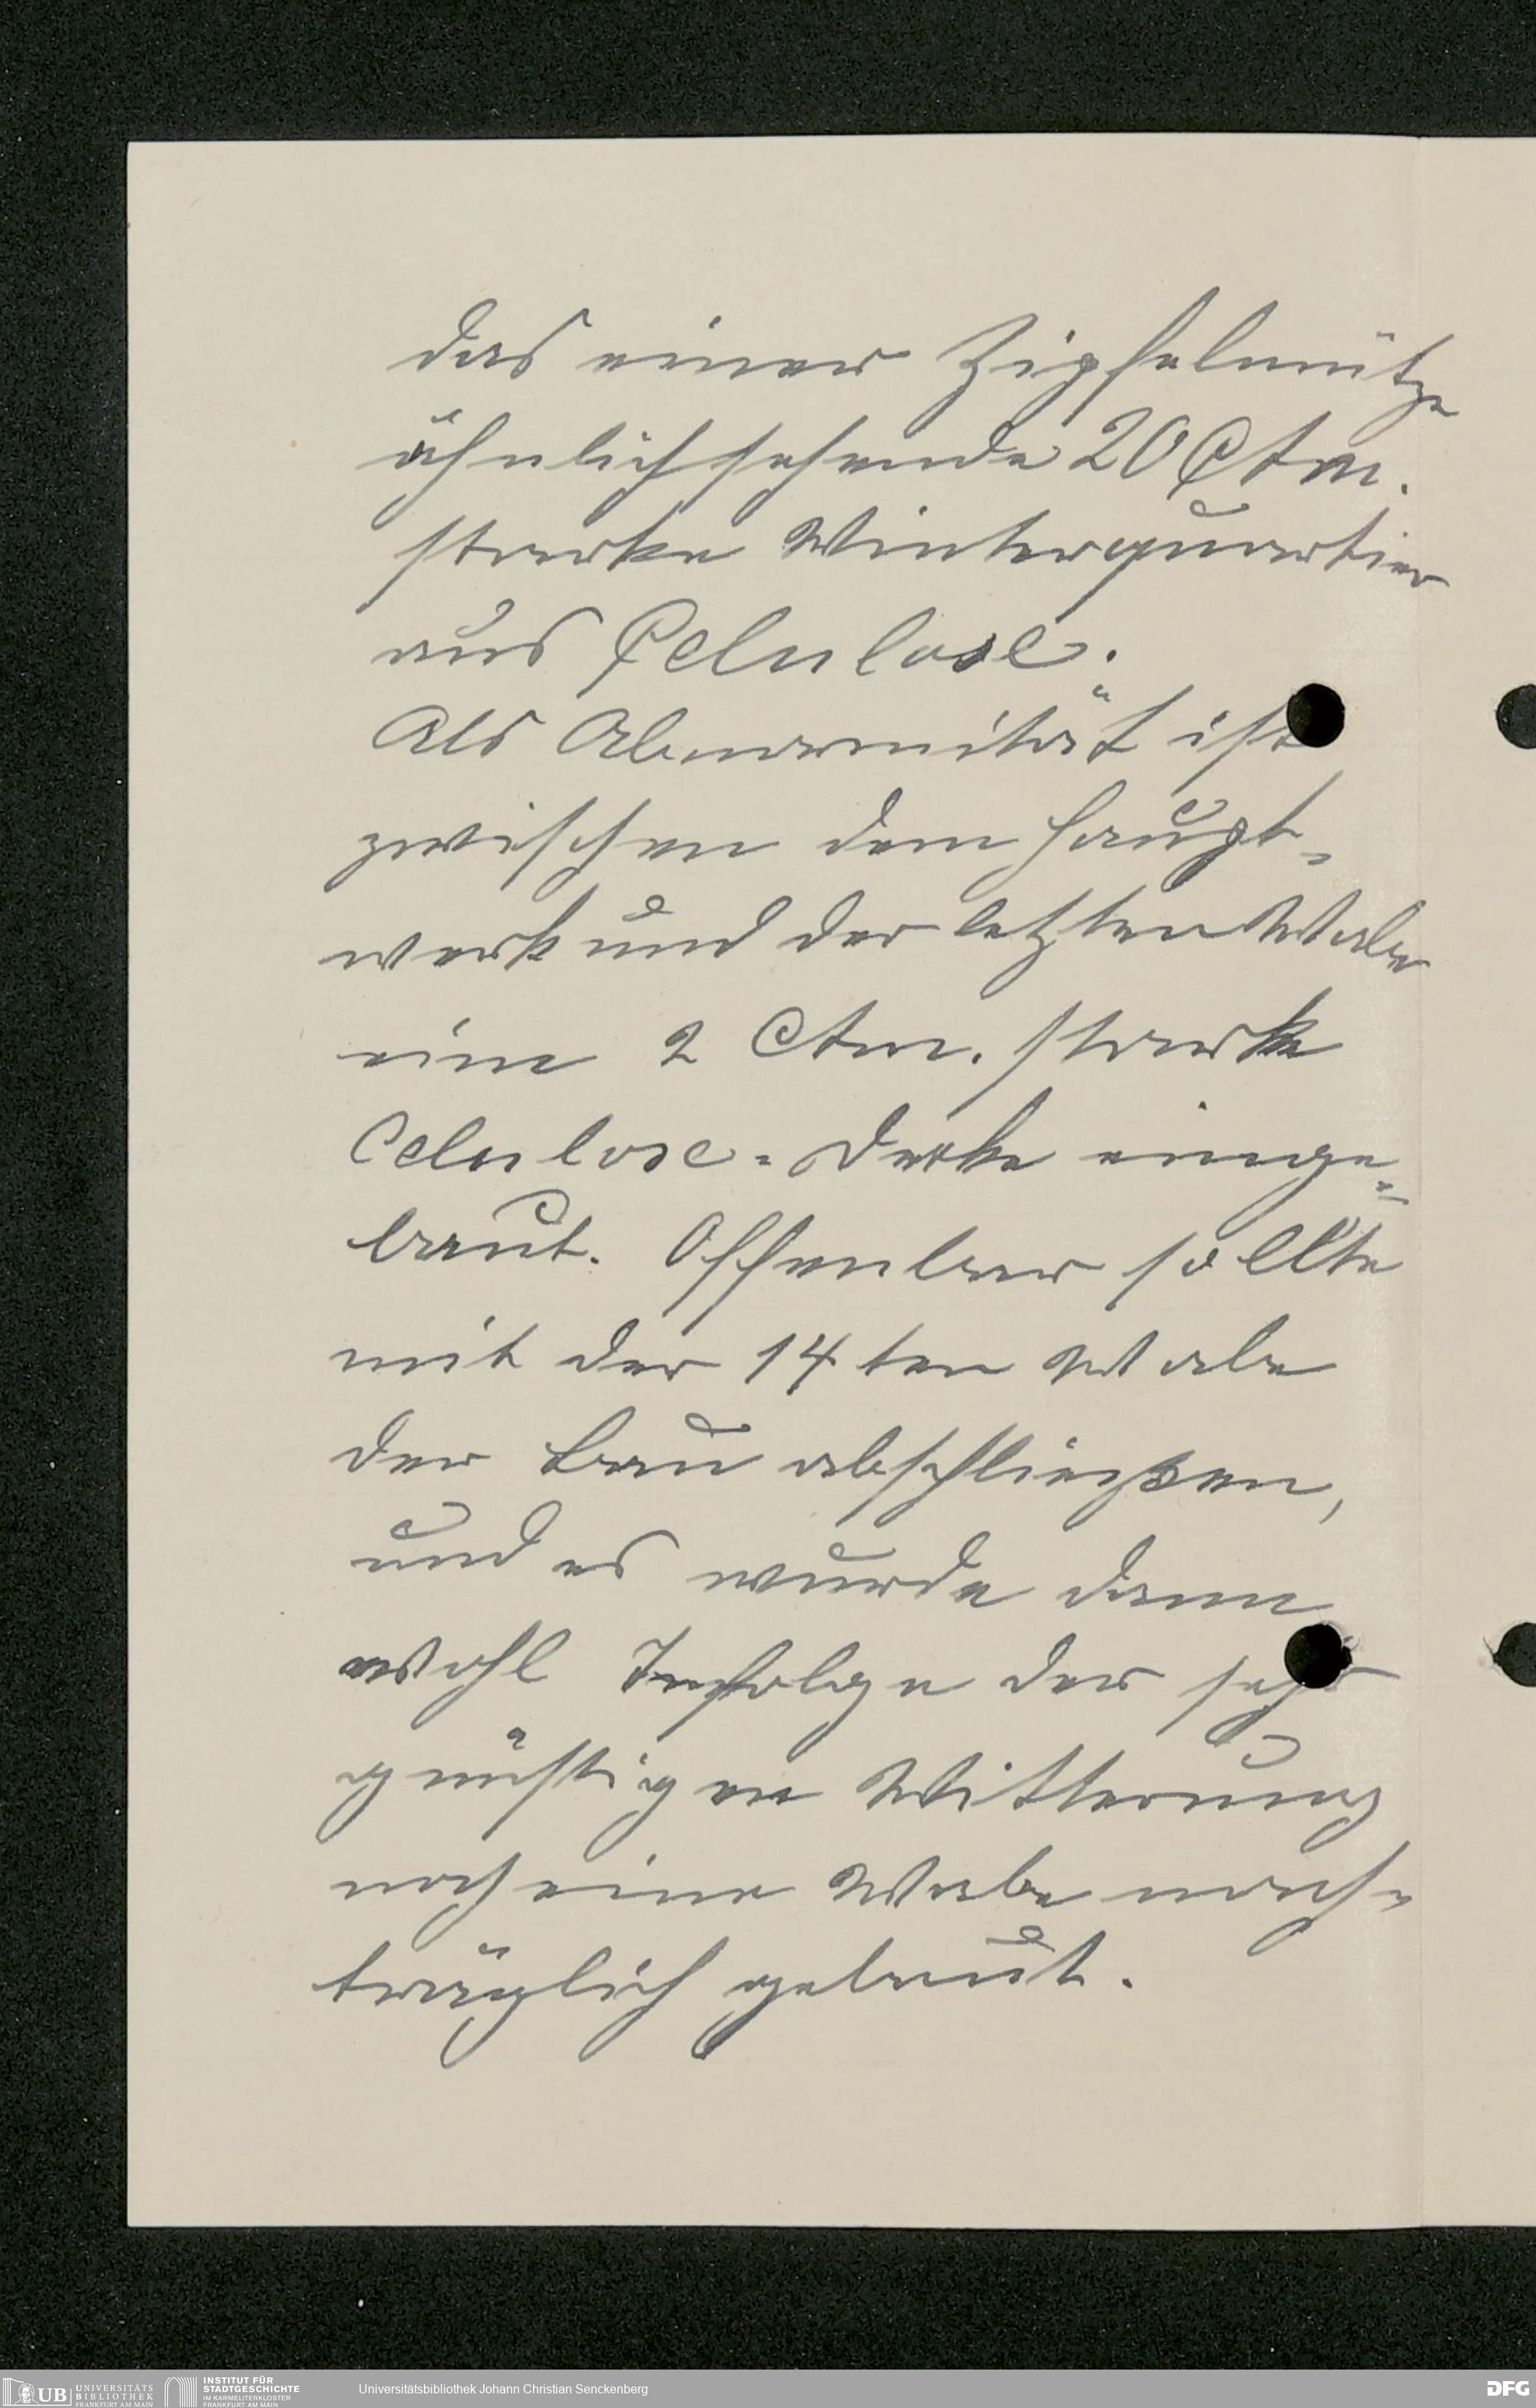 das einer Zipfelmütze
ähnlich sehende 20 Ctm.
starke Winterquartier
aus Celulose.
Als Abnormität ist
zwischen dem Haupt-
werk und der letzten Wabe
eine 2 Ctm. starke
Celulose-Decke einge-
baut. Offenbar sollte
mit der 14ten Wabe
der Bau abschließen,
und es wurde dann
wohl Infolge der sehr
günstigen Witterung
noch eine Wabe nach-
träglich gebaut.
UB UNIVERSITÄTS BIBLIOTHEK FRANKFURT AM MAIN
INSTITUT FÜR STADTGESCHICHTE IM KARMELITERKLOSTER FRANKFURT AM MAIN
Universitätsbibliothek Johann Christian Senckenberg
DFG